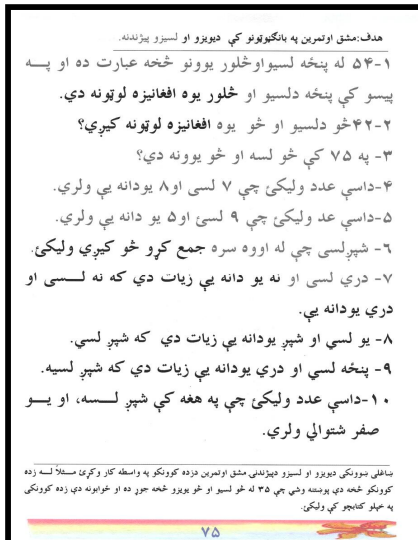 هدف:مشق اوتمرین په بانگنوټونو کې دیویزو او لسیزو پیژندنه.
۱-۵۴ له پنځه لسیواوڅلور یوونو څخه عبارت ده او پـــه
پیسو کې پنځه دلسیو او څلور یوه افغانیزه لوټونه دي.
۲-۴۲څو دلسیو او څو یوه افغانیزه لوټونه کیږي؟
۳- په ۷۵ کې څو لسه او څو یوونه دي؟
۴-داسې عدد ولیکئ چې ۷ لسی او۸ یودانه یې ولري.
۵-داسې عد ولیکئ چې ۹ لسئ او۵ یو دانه یې ولري.
۶- شپږلسی چې له اووه سره جمع کړو څو کیږي ولیکئ.
۷- دري لسی او نه یو دانه یې زیات دي که نه لـــسی او
دري یودانه یې.
۸- یو لسي او شپږ یودانه یې زیات دي که شپږ لسي.
۹- پنځه لسي او دري یودانه یې زیات دي که شپږ لسیه.
۱۰-داسې عدد ولیکئ چې په هغه کې شپږ لـــسه، او یـــو
صفر شتوالي ولري.
ښاغلی ښوونکی دیویزو او لسیزو دپیژندنې مشق اوتمرین دزده کوونکو په واسطه کار وکړئ مـــثلاً لـــه زده
کوونکو څخه دې پوښتنه وشي چې ۳۵ له څو لسیو او څو یویزو څخه جوړ ده او ځوابونه دې زده کوونکی
په خپلو کتابچو کې ولیکئ.
۷۵